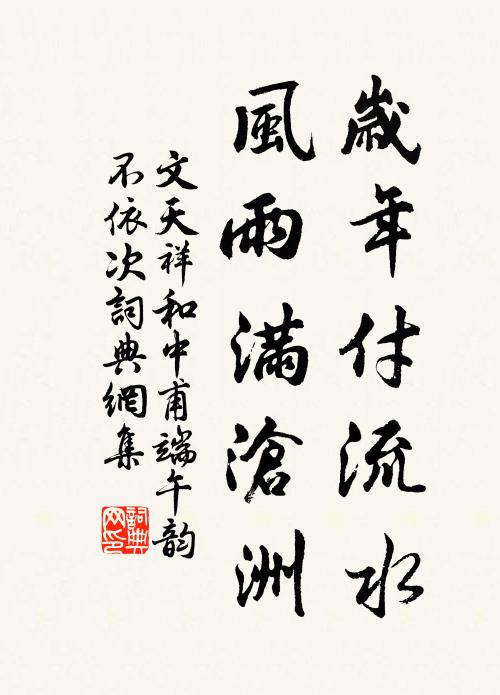 歲年付流水
風雨滿滄洲
文天祥和中甫端午韵
不依次詞典網集
詞典
网印